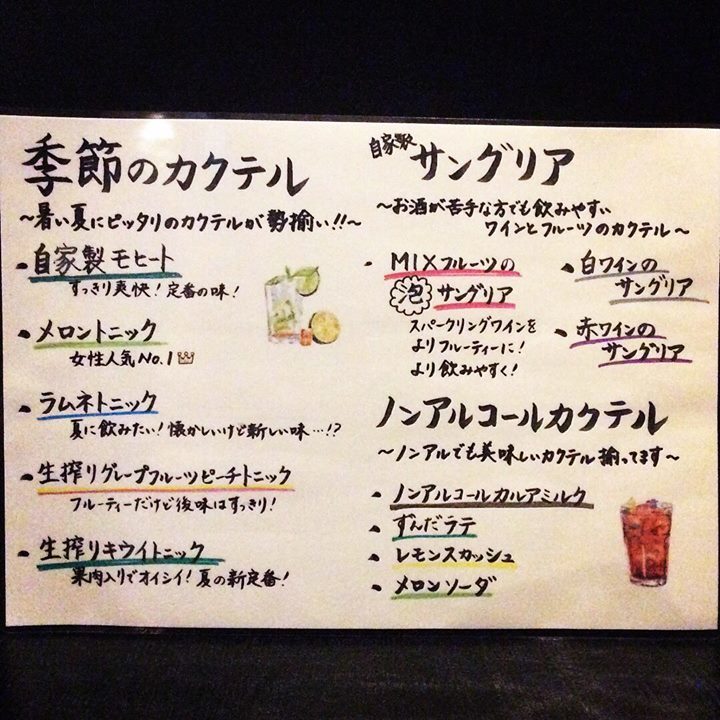 季節のカクテル
～暑い夏にピッタリのカクテルが勢揃い!!～
・自家製モヒート
すっきり爽快！定番の味！
・メロントニック
女性人気No.1
・ラムネトニック
夏に飲みたい！懐かしいけど新しい味…!?
・生搾りグレープフルーツピーチトニック
フルーティーだけど後味はすっきり！
・生搾りキウイトニック
果肉入りでオイシイ！夏の新定番！
自家製 サングリア
～お酒が苦手な方でも飲みやすい
ワインとフルーツのカクテル～
・MIXフルーツの
泡サングリア
スパークリングワインを
よりフルーティーに！
より飲みやすく！
・白ワインの
サングリア
・赤ワインの
サングリア
ノンアルコールカクテル
～ノンアルでも美味しいカクテル揃ってます～
・ノンアルコールカルアミルク
・ずんだラテ
・レモンスカッシュ
・メロンソーダ